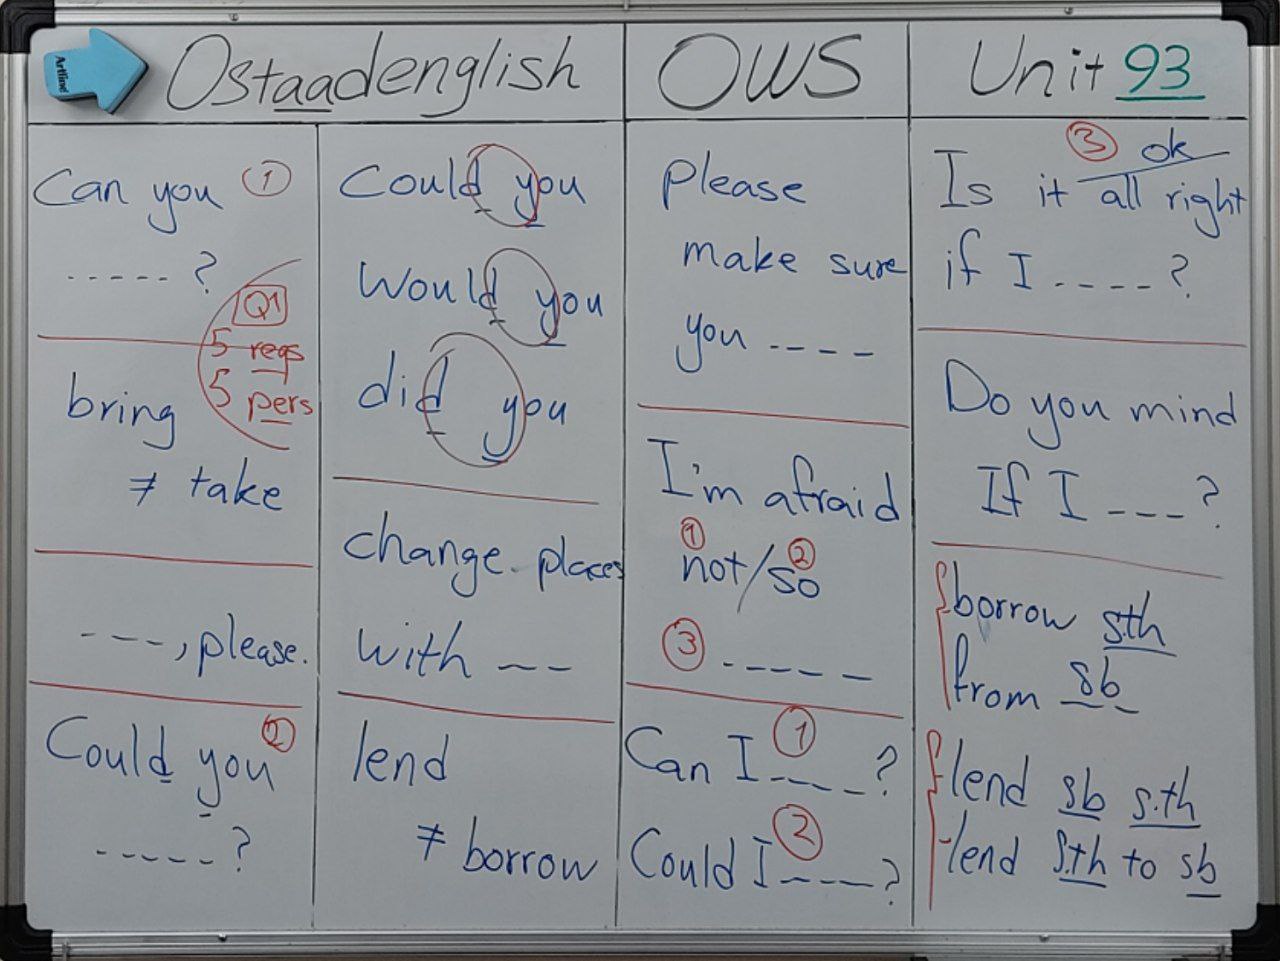 Artline
Ostaadenglish
OWS
Unit 93
Can you ①
-----?
Q1
5 reqs
5 pers
bring
≠ take
---, please.
Could you ②
-----?
Could you
Would you
did you
change places
with --
lend
≠ borrow
please
make sure
you ----
I'm afraid
① not/② so
③ ----
Can I ① ----?
Could I ② ----?
③ ok
Is it all right
if I ----?
Do you mind
If I ---?
borrow s.th
from sb
lend sb s.th
lend s.th to sb